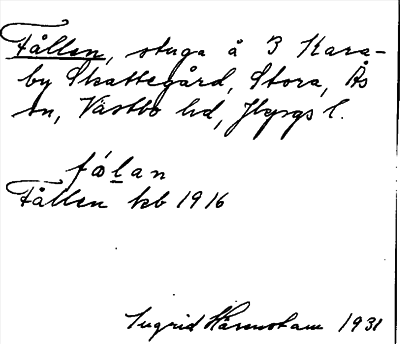 Fållen, stuga å 3 Kara-
by Skattegård, Stora, Ås
sn, Västbo hd, Jkpgs l.
fålan
Fållen kb 1916
Ingrid 1931